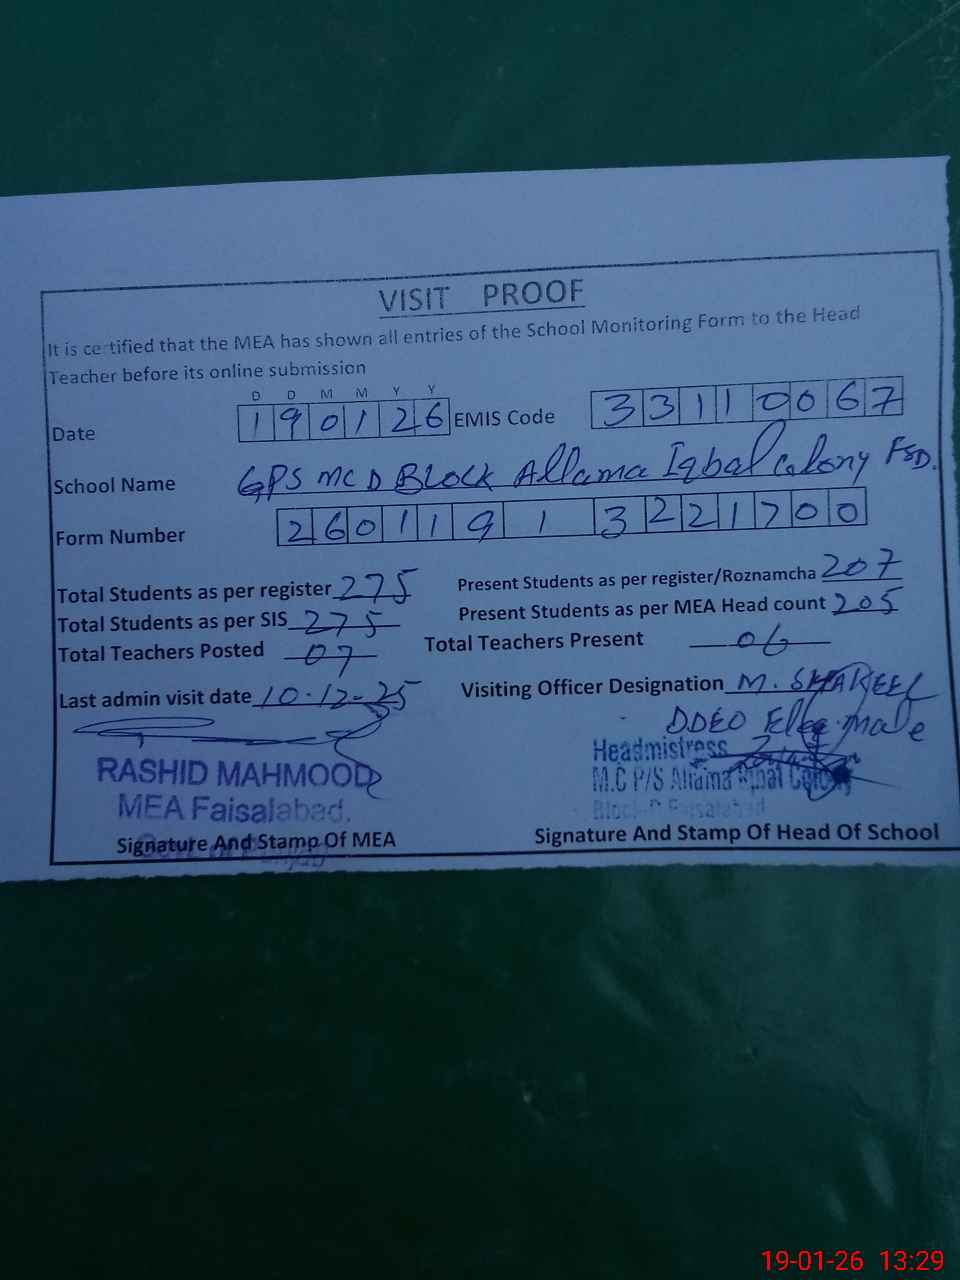 VISIT PROOF
It is certified that the MEA has shown all entries of the School Monitoring Form to the Head
Teacher before its online submission
D D M M Y Y
Date 190126 EMIS Code 33110067
School Name GPS MC D BLock Allama Iqbal Colony FSD.
Form Number 26011913221700
Total Students as per register 275 Present Students as per register/Roznamcha 207
Total Students as per SIS 275 Present Students as per MEA Head count 205
Total Teachers Posted 07 Total Teachers Present 06
Last admin visit date 10-12-25 Visiting Officer Designation M. SHAREEF
DDEO Ele male
RASHID MAHMOOD
MEA Faisalabad.
Headmistress
M.C P/S Allama Iqbal Colony
Block-D Faisalabad
Signature And Stamp Of MEA Signature And Stamp Of Head Of School
19-01-26 13:29